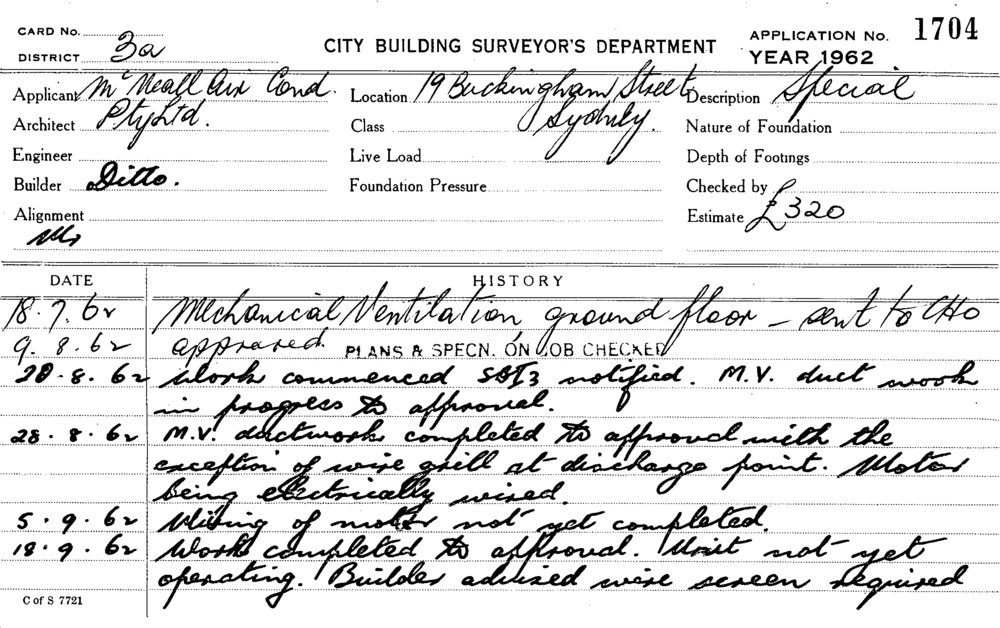 CARD No.
DISTRICT 3a
CITY BUILDING SURVEYOR'S DEPARTMENT
APPLICATION No. 1704
YEAR 1962
Applicant McNeall Air Cond. Pty Ltd.
Location 19 Buckingham Street, Sydney.
Description Special
Architect
Class
Nature of Foundation
Engineer
Live Load
Depth of Footings
Builder Ditto.
Foundation Pressure
Checked by
Alignment
Estimate £320
DATE HISTORY
18.7.62 Mechanical Ventilation, ground floor – sent to CHO
9.8.62 approved. PLANS & SPECN. ON JOB CHECKED
20.8.62 Work commenced notified. M.V. duct work
in progress to approval.
28.8.62 M.V. ductwork completed to approval with the
exception of wire grill at discharge point. Motor
being electrically wired.
5.9.62 Wiring of motor not yet completed.
18.9.62 Work completed to approval. Unit not yet
operating. Builder advised wire screen required
C of S 7721